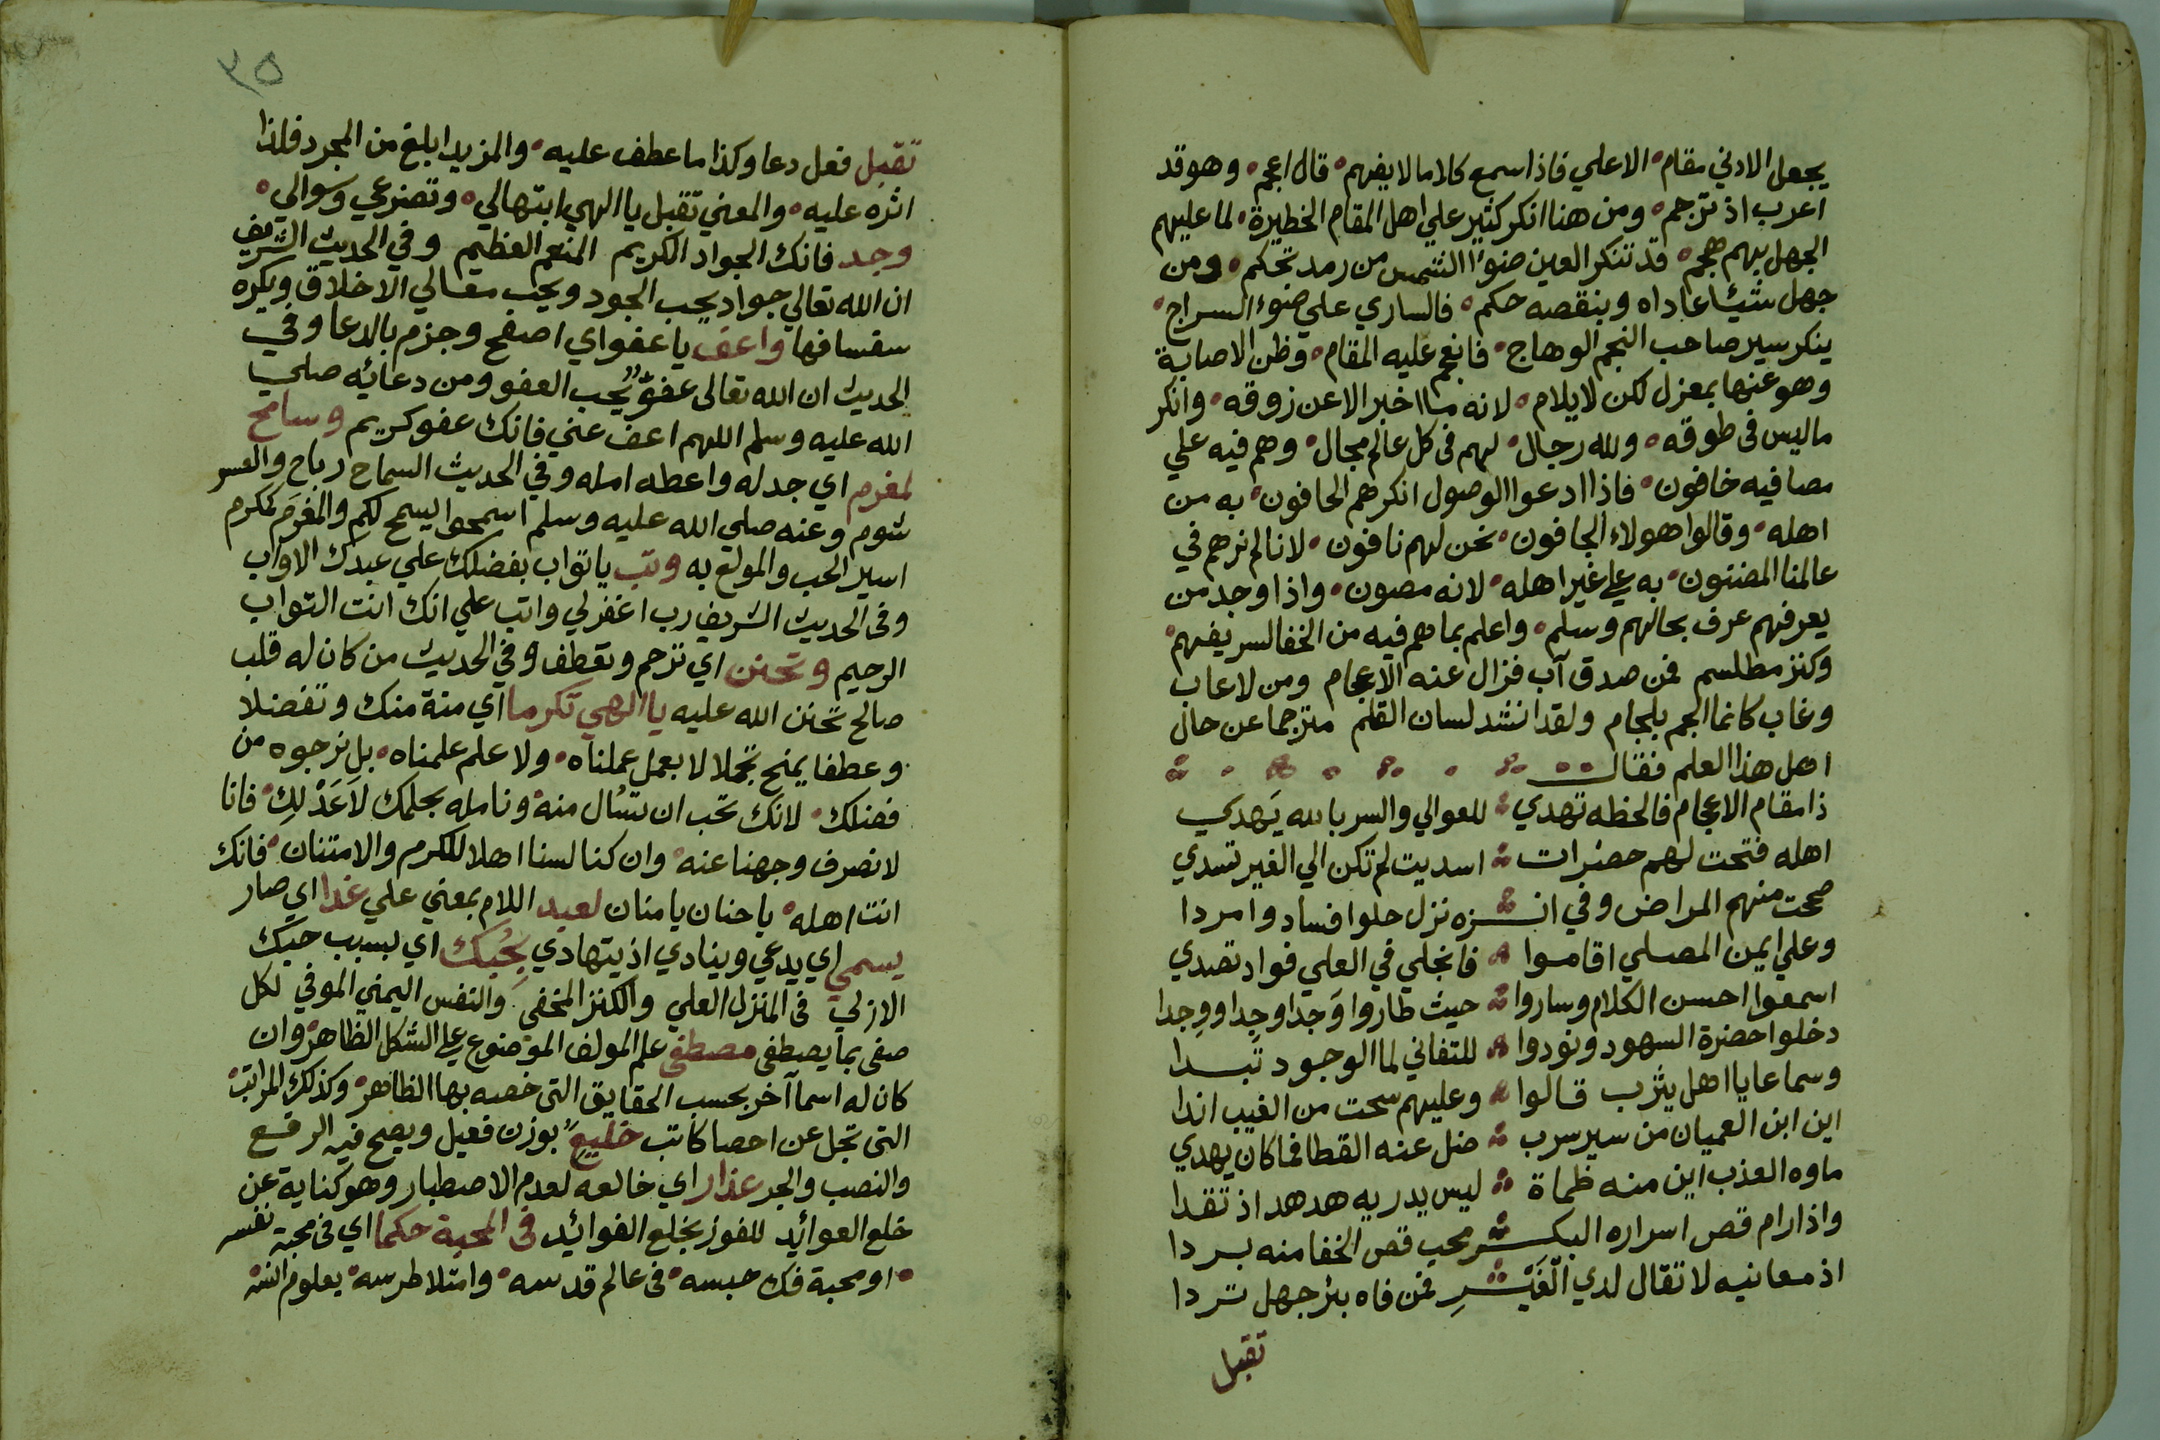 يجعل الادني مقام الاعلي فاذا سمع كلاما لا يفهم قال اعجم وهو قد
اعرب اذ ترجم ومن هنا انكر كثير علي اهل المقام الخطيرة لما عليهم
الجهل بهم هجم قد تنكر العين ضوء الشمس من رمد تحكم ومن
جهل شيئا عاداه وبنقصه حكم فالساري علي ضوء السراج
ينكر سير صاحب النجم الوهاج فانعجم عليه المقام وظن الاصابة
وهو عنها بمعزل لكن لا يلام لانه ما اخبر الا عن زوقه وانكر
ما ليس في طوقه ولله رجال لهم في كل عالم مجال وهم فيه علي
مصافيه خافون فاذا ادعوا الوصول انكرهم الحافون به من
اهله وقالوا هولاء الجافون نحن لهم نافون لانا لم نرهم في
عالمنا المضنون به علي غير اهله لانه مصون واذا وجد من
يعرفهم عرف بحالهم وسلم واعلم بما هم فيه من الخفا لسر يفهم
وكنز مطلسم فمن صدق آب فزال عنه الاعجام ومن لا عاب
وغاب كانما الجم بلجام ولقد انشد لسان القلم مترجما عن حال
اهل هذا العلم فقال
ذا مقام الاعجام فالحظه تهدي للعوالي والسر بالله يَهدي
اهله فتحت لهم حضرات اسديت لم تكن الي الغير تسدي
صححت منهم المراض وفي انـــزه نزل حلوا فساد وامردا
وعلي ايمن المصلي اقاموا فانجلي في العلي فواد تصدي
اسمعوا احسن الكلام وساروا حيث طاروا وَجدا وجِدا ووجدا
دخلوا حضرة السهود ونودوا للتفاني لما الوجود تبدا
وسماعا يا اهل يثرب قالوا وعليهم سحت من الغيب اندا
اين ابن العميان من سير سرب ضل عنه القطا فما كان يهدي
ماوه العذب اين منه ظماة ليس يدريه هدهد اذ تفدا
واذا رام قص اسراره البكــر محب قص الخفا منه بردا
اذ معانيه لا تقال لدي الغَيْــرِ فمن فاه بئر جهل تردا
تقبل
٣٥
تقبل فعل دعا وكذا ما عطف عليه والمزيد ابلغ من المجرد فلذا
اثره عليه والمعني تقبل يا الهي ابتهالي وتضرعي وسوالي
وجد فانك الجواد الكريم المنعم العظيم وفي الحديث الشريف
ان الله تعالي جواد يحب الجود ويحب معالي الاخلاق ويكره
سفسافها واعف يا عفو اي اصفح وجزم بالدعا وفي
الحديث ان الله تعالى عفوٌّ يحب العفو ومن دعائه صلي
الله عليه وسلم اللهم اعف عني فانك عفو كريم وسامح
لمغرم اي جد له واعطه امله وفي الحديث السماح رباح والعسر
شوم وعنه صلي الله عليه وسلم اسمحوا يسمح لكم والمغرَم كمكرم
اسير الحب والمولع به وتب يا تواب بفضلك علي عبدك الاواب
وفي الحديث الشريف رب اغفر لي واتب علي انك انت التواب
الرحيم وتحنن اي ترحم وتعطف وفي الحديث من كان له قلب
صالح تحنن الله عليه يا الهي تكرما اي منة منك وتفضلا
وعطفا يمنح تجملا لا بعمل عملناه ولا علم علمناه بل نرجوه من
فضلك لانك تحب ان تسُال منه ونامله بحلمك لا عَدْلِك فانا
لا نصرف وجهنا عنه وان كنا لسنا اهلا للكرم والامتنان فانك
انت اهله يا حنان يا منان لعبد اللام بمعني علي غدا اي صار
يسمي اي يدعي وينادي اذ يتهادي بِحُبك اي بسبب حبك
الازلي في المنزل العلي والكنز المخفي والنفس اليمني الموفي لكل
صفى بما يصطفى مصطفى علم المولف الموضوع علي الشكل الظاهر وان
كان له اسما آخر بحسب الحقايق التي خصه بها الظاهر وكذلك المراتب
التي تجل عن احصا كاتب خليع بوزن فعيل ويصح فيه الرفع
والنصب والجر عذار اي خالعه لعدم الاصطبار وهو كناية عن
خلع العوائد للفوز بخلع الفوائد في المحبة حكما اي في محبة نفسه
او محبة فك حبسه في عالم قدسه وامتلا طرسه بعلوم انسه